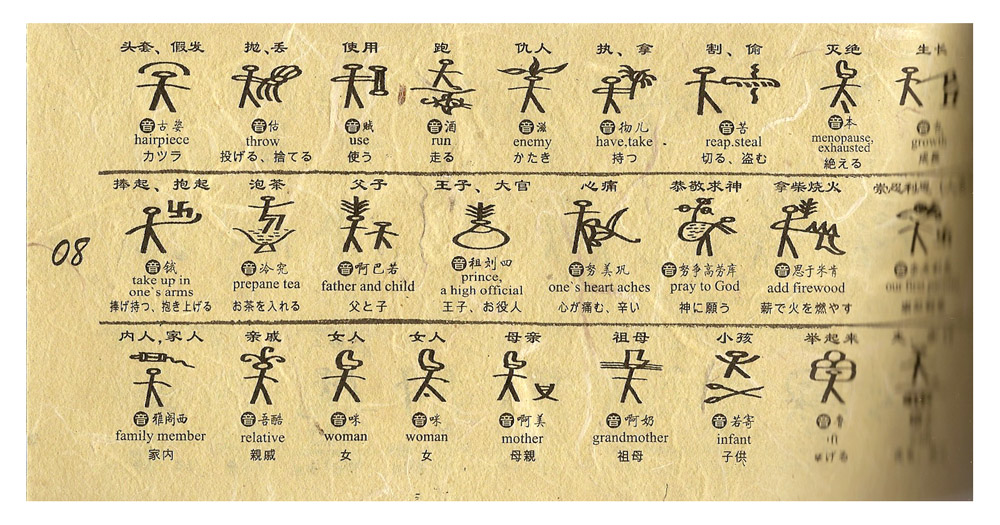 头套、假发 抛、丢 使用 跑 仇人 执、拿 割、偷 灭绝
音古婆 音估 音贼 音酒 音滋 音物儿 音苦 音本
hairpiece throw use run enemy have,take reap.steal menopause, exhausted growth
カツラ 投げる、捨てる 使う 走る かたき 持つ 切る、盗む 絶える 成長
捧起、抱起 泡茶 父子 王子、大官 心痛 恭敬求神 拿柴烧火
08
音饿 音冷究 音啊巴若 音祖刘四 音努美巩 音努争高劳库 音思于米肯
take up in one`s arms prepane tea father and child prince, a high official one`s heart aches pray to God add firewood
捧げ持つ、抱き上げる お茶を入れる 父と子 王子、お役人 心が痛む、辛い 神に願う 薪で火を燃やす
内人,家人 亲戚 女人 女人 母亲 祖母 小孩 举起来
音雅阁西 音吾酷 音咪 音咪 音啊美 音啊奶 音若寄
family member relative woman woman mother grandmother infant
家内 親戚 女 女 母親 祖母 子供